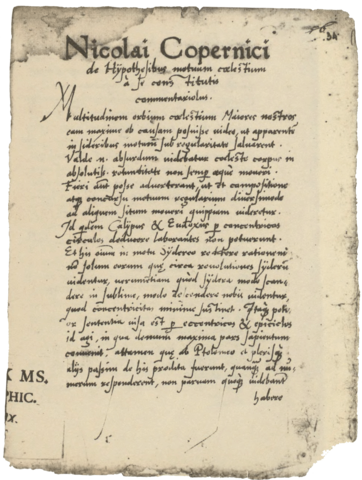 34
Nicolai Copernici
de Hypothesibus motuum cœlestium
à se constitutis
commentariolus.
Multitudinem orbium cœlestium Maiores nostros
eam maxime ob causam posuisse video, ut apparentem
in sideribus motum sub regularitate salvarent.
Valde n. absurdum videbatur cœleste corpus in
absolutiss. rotunditate non semp. æque moveri.
Fieri aut. posse adverterant, ut et compositione
atq; concursu motuum regularium diversimode
ad aliquem situm moveri quippiam videretur.
Id quidem Calippus & Eudoxus p. concentricos
circulos deducere laborantes non potuerunt.
Et his omnium in motu sydereo reddere rationem
nō solum eorum quæ circa revolutiones syderū
videntur, verumetiam quod sydera modo scan-
dere in sublime, modo descendere nobis videntur,
quod concentricitas minime sustinet. Itaq; poti-
or sententia visa est p. eccentricos & epiciclos
id agi, in qua demum maxima pars sapientum
convenit. attamen quæ ab Ptolomeo et plerisq;
alijs passim de his prodita fuerunt, quanq; ad nu-
merum responderent, non parvam quoq; videbant
habere
MS.
PHIC.